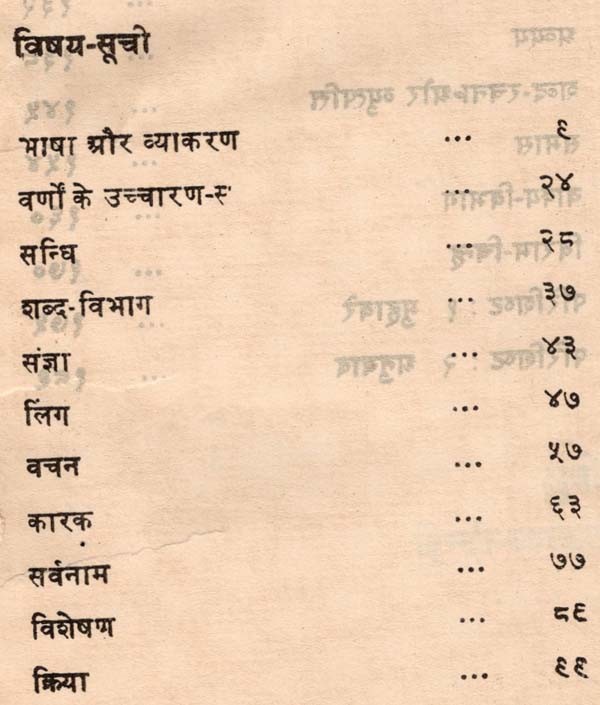 विषय-सूची
भाषा और व्याकरण ... ९
वर्णों के उच्चारण-स ... २४
सन्धि ... २८
शब्द-विभाग ... ३७
संज्ञा ... ४३
लिंग ... ४७
वचन ... ५७
कारक ... ६३
सर्वनाम ... ७७
विशेषण ... ८९
क्रिया ... ९९